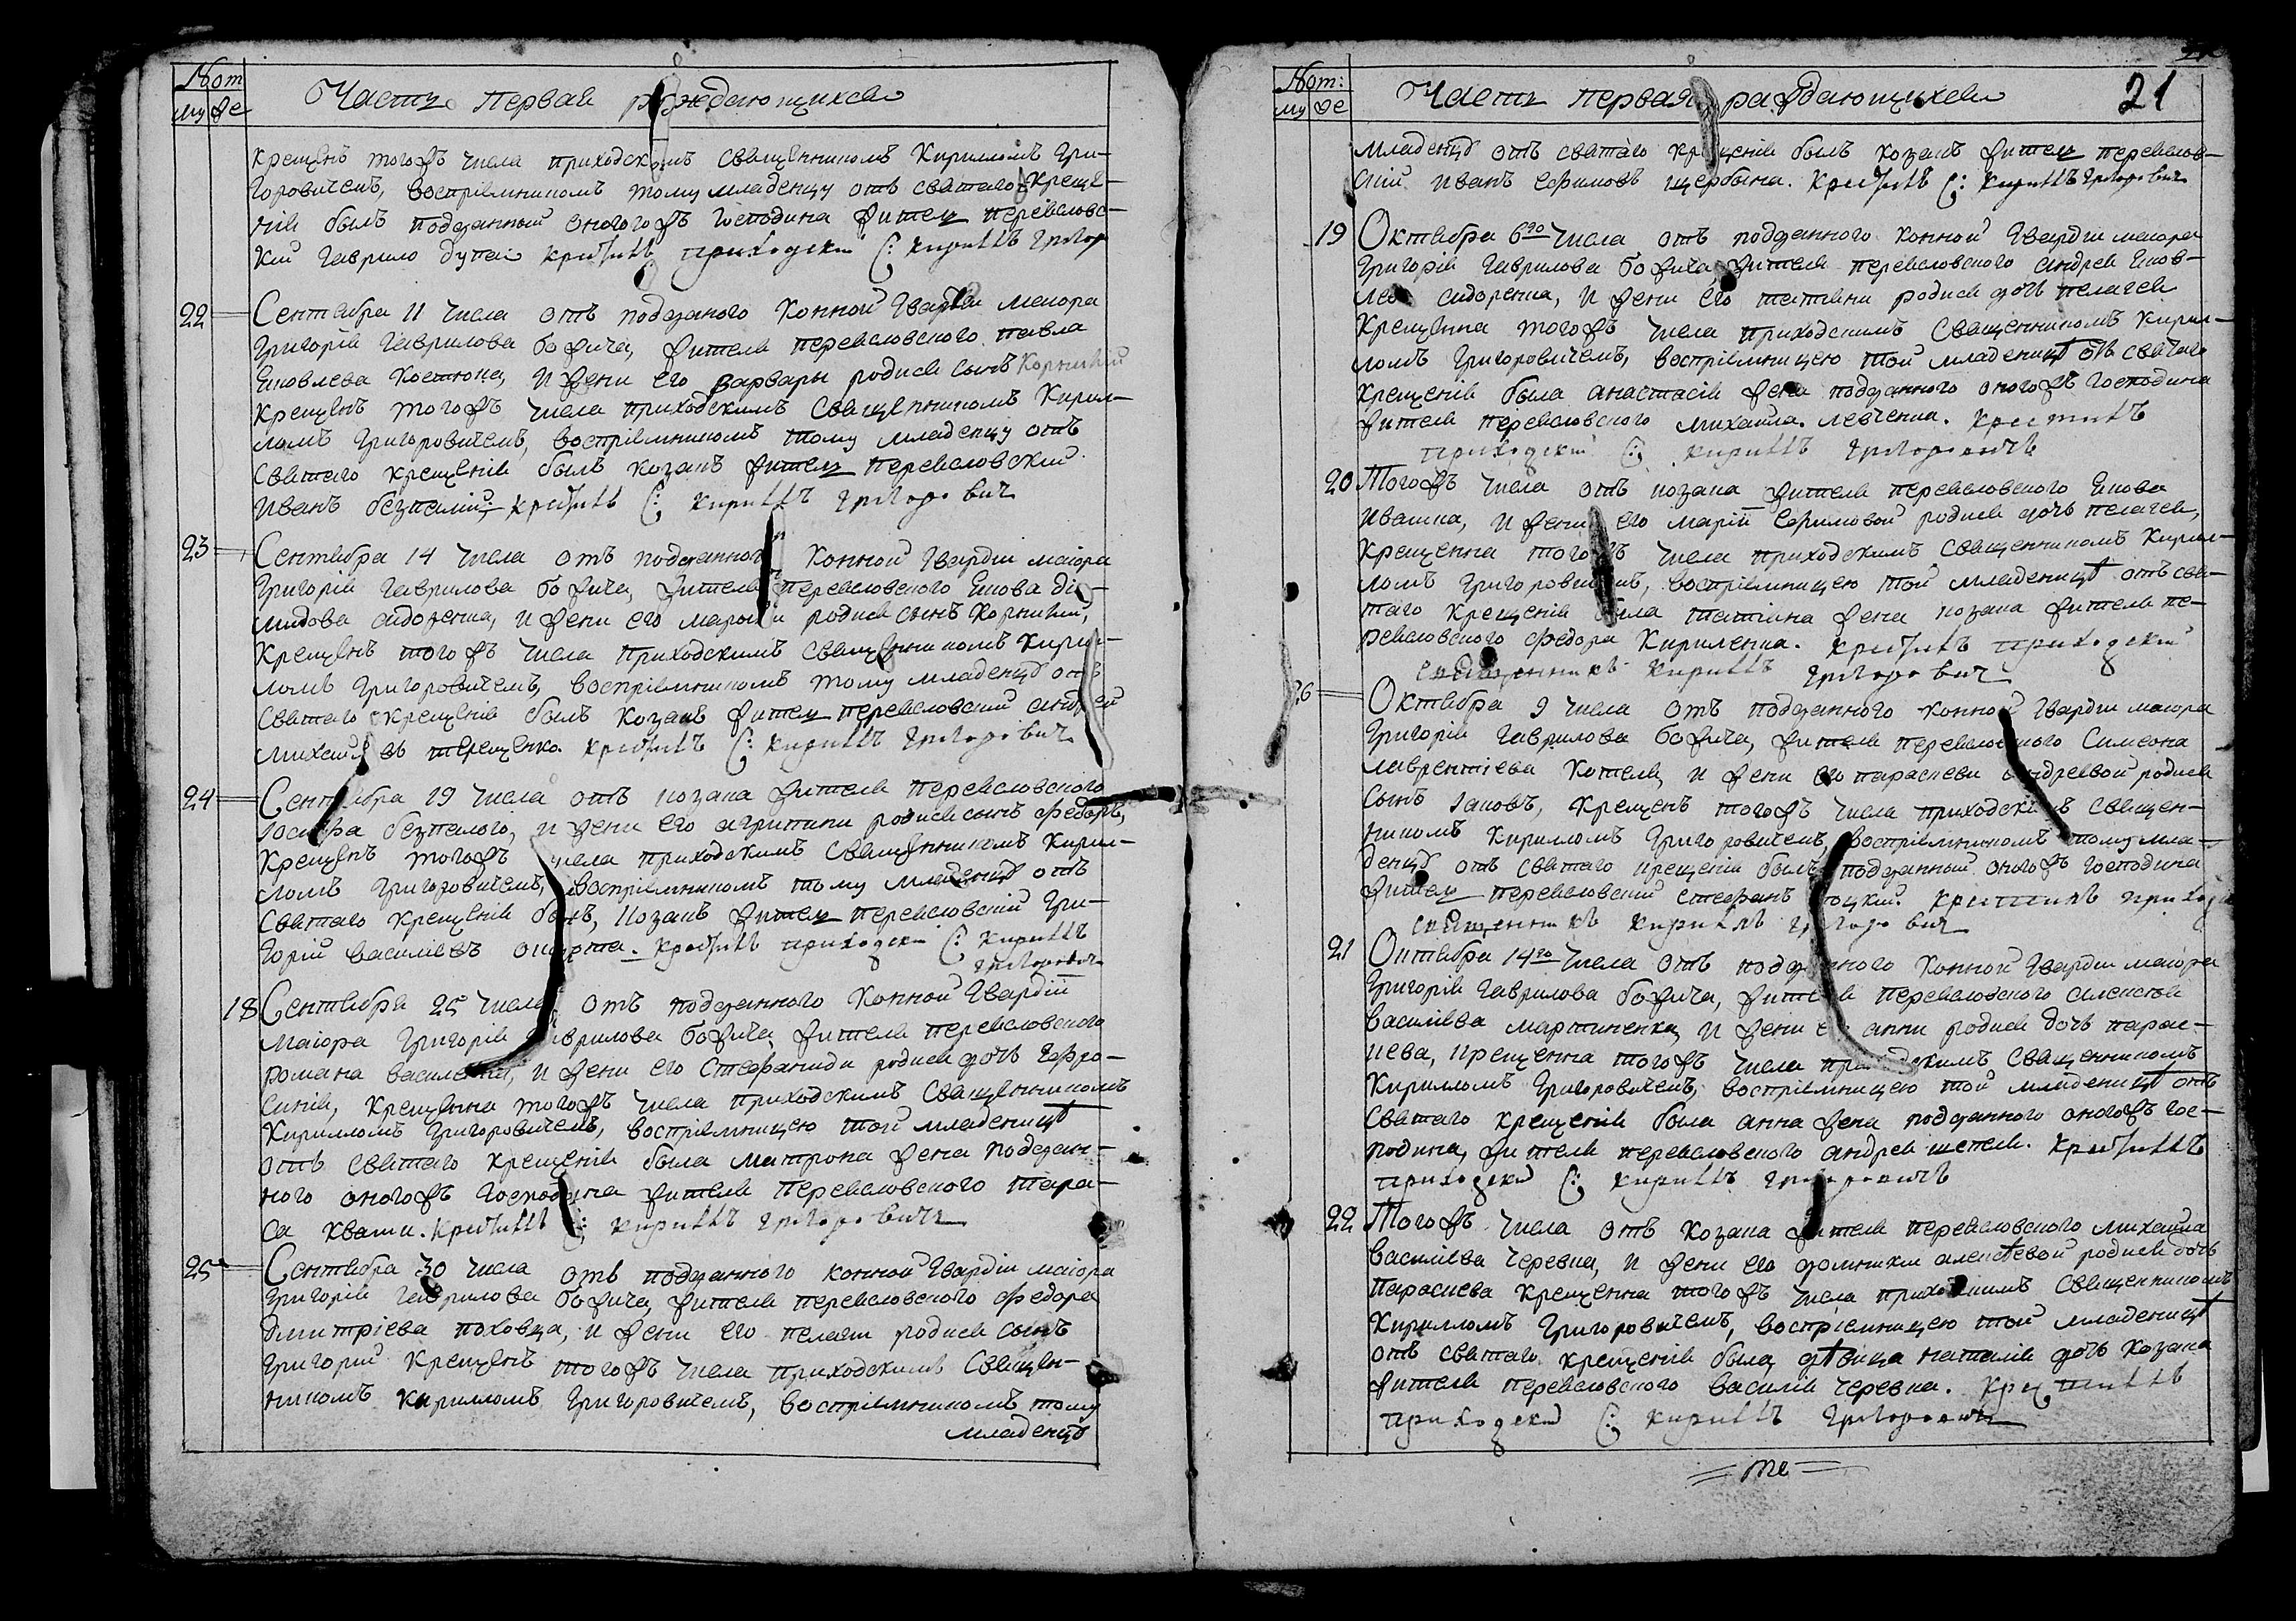 Nom
му же
Часть первая раждающихся
крещенъ тогожъ числа приходскимъ священникомъ Кирилломъ Гри-
горовичемъ, воспріемникомъ тому младенцу отъ святаго креще-
нія былъ подданный оногожъ господина житель переясловс-
кій Гаврило дупай крестилъ приходскій С: Кириллъ Григор
22 Сентября 11 числа отъ подданого Конной Гвардіи маиора
Григорія Гаврилова божича, жителя переясловского павла
Яковлева Костюка, и жены его варвары родися сынъ Корнилій
крещенъ тогожъ числа приходскимъ священникомъ Кирил-
ломъ Григоровичемъ, воспріемникомъ тому младенцу отъ
святаго крещенія былъ козакъ житель переясловскій
Иванъ безпалій; крестилъ С: Кириллъ Григорович
23 Сентября 14 числа отъ подданного Конной Гвардіи маіора
Григорія Гаврилова божича, жителя переясловского Якова ді-
мидова сидоренка, и жены его марфи родися сынъ Корнилій,
крещенъ тогожъ числа приходскимъ священникомъ Кирил-
ломъ Григоровичемъ, воспріемникомъ тому младенцу отъ
святаго крещенія былъ козакъ житель переясловскій андрей
михайловъ терещенко крестилъ С: Кириллъ Григорович
24 Сентября 19 числа отъ козака жителя переясловского
Іосифа безпалого, и жены его агрипини родися сынъ Федоръ,
крещенъ тогожъ числа приходскимъ священникомъ Кирил-
ломъ Григоровичемъ, воспріемникомъ тому младенцу отъ
святаго крещенія былъ, козакъ житель переясловскій Гри-
горій василіевъ крестилъ приходскій С: Кириллъ
Григорович
18 Сентября 25 числа отъ подданного Конной Гвардіи
маіора Григорія Гаврилова божича, жителя переясловского
романа василенка, и жены его Стефаниди родися дочь Ефро-
синія, крещенна тогожъ числа приходскимъ священникомъ
Кирилломъ Григоровичемъ, воспріемницею той младеницѣ
отъ святаго крещенія была матрона жена поддан-
ного оногожъ господина жителя переясловского тара-
са кваши. крестилъ С: Кириллъ Григорович
25 Сентября 30 числа отъ подданного конной Гвардіи маіора
Григорія Гаврилова божича, жителя переясловского Федора
Дмитріева поховца, и жены его пелагіи родися сынъ
Григорій крещенъ тогожъ числа приходскимъ священ-
никомъ Кирилломъ Григоровичемъ, воспріемникомъ тому
младенцу
Nom:
му же
Часть первая раждающихся
21
младенцу отъ святаго крещенія былъ козакъ житель переяслов-
скій Иванъ Ефимовъ щербина. крестилъ С: Кириллъ Григорович
19 Октября 6го числа отъ подданного конной Гвардіи маіора
Григорія Гаврилова божича жителя переясловского андрея Яков-
лева сидоренка, и жены его татіяни родися дочь пелагея
крещенна тогожъ числа приходскимъ священникомъ Кирил-
ломъ Григоровичемъ, воспріемницею той младеницѣ отъ святаго
крещенія была анастасія жена подданного оногожъ господина
жителя переясловского михаила левченка. крестилъ
приходскій С: Кириллъ Григоровичъ
20 Тогожъ числа отъ козака жителя переясловского Якова
ивашка, и жены его маріи Ефимовой родися дочь пелагея,
крещенна тогожъ числа приходскимъ священникомъ Кирил-
ломъ Григоровичемъ, воспріемницею той младеницѣ отъ свя-
таго крещенія была татіяна жена козака жителя пе-
реясловского Федора Кириленка. крестилъ приходскій
священникъ Кириллъ Григорович
26 Октября 9 числа отъ подданного конной Гвардіи маіора
Григорія Гаврилова божича, жителя переясловского Симеона
лаврентіева Котеля, и жены его параскеви андреевой родися
сынъ Іаковъ, крещенъ тогожъ числа приходскимъ священ-
никомъ Кирилломъ Григоровичемъ, воспріемникомъ тому мла-
денцу отъ святаго крещенія былъ подданный оногожъ господина
житель переясловскій стефанъ крестилъ приход
священникъ Кириллъ Григорович
21 Октября 14го числа отъ подданного Конной Гвардіи маіора
Григорія Гаврилова божича, жителя переясловского алексѣя
василіева мартиненка, и жены его анни родися дочь парас-
кева, крещенна тогожъ числа приходскимъ священникомъ
Кирилломъ Григоровичемъ, воспріемницею той младеницѣ отъ
святаго крещенія была анна жена подданного оногожъ гос-
подина, жителя переясловского андрея шепеля. крестилъ
приходскій С: Кириллъ Григоровичъ
22 Тогожъ числа отъ козака жителя переясловского михаила
василіева черевка, и жены его домникіи алексѣевой родися дочь
параскева крещенна тогожъ числа приходскимъ священникомъ
Кирилломъ Григоровичемъ, воспріемницею той младеницѣ
отъ святаго крещенія была дѣвица наталія дочь козака
жителя переясловского василія черевка. крестилъ
приходскій С: Кириллъ Григорович